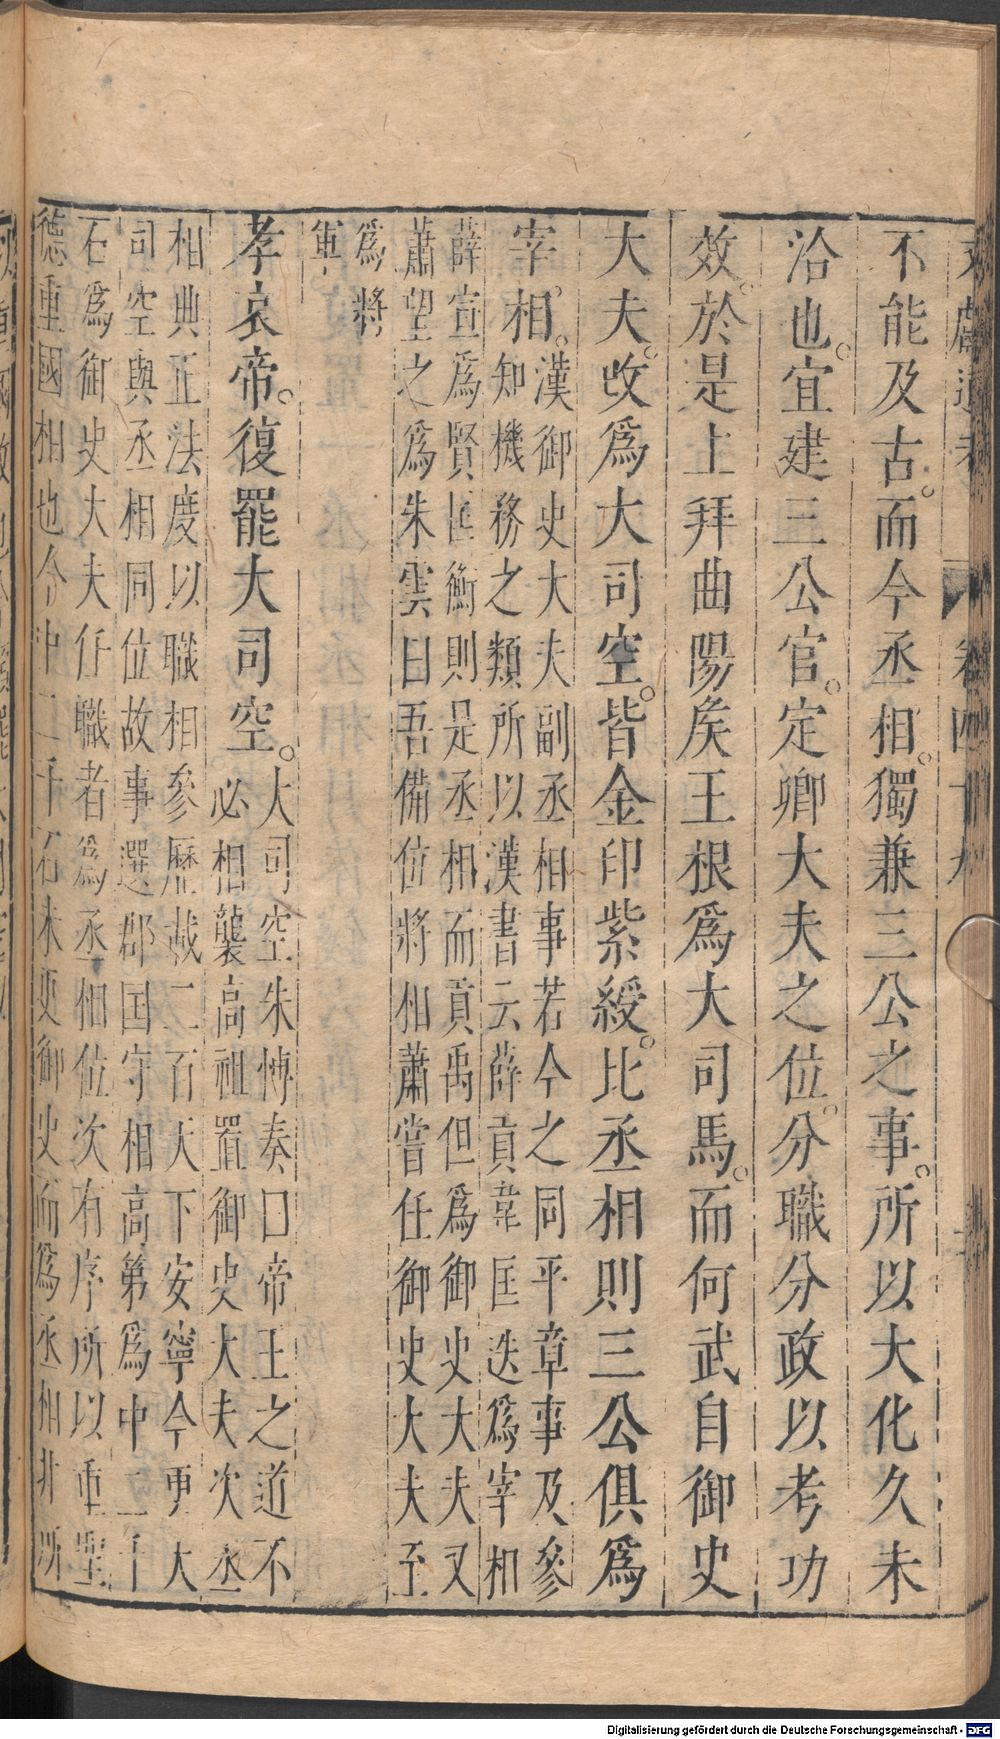 文獻通考 卷四十九
不能及古。而今丞相。獨兼三公之事。所以大化久未
洽也。宜建三公官。定卿大夫之位。分職分政以考功
效。於是上拜曲陽矦王根爲大司馬。而何武自御史
大夫。改爲大司空。皆金印紫綬。比丞相則三公俱爲
宰相。漢御史大夫副丞相事若今之同平章事及參
知機務之類所以漢書云薛貢韋匡迭爲宰相
薛宣爲賢匡衡則是丞相而貢禹但爲御史大夫又
蕭望之爲朱雲曰吾備位將相蕭嘗任御史大夫至
爲將
軍。
孝哀帝。復罷大司空。大司空朱愽奏曰帝王之道不
必相襲高祖置御史大夫次丞
相典正法度以職相參歷載二百天下安寧今更大
司空與丞相同位故事選郡国守相高第爲中二千
石爲御史大夫任職者爲丞相位次有序所以重聖
德重國相也今中二千石未更御史而爲丞相非所
Digitalisierung gefördert durch die Deutsche Forschungsgemeinschaft - DFG